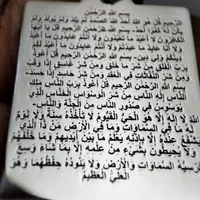 بسم الله الرحمن
الرحيم قل هو الله احد الله الصمد لم يلد ولم يولد ولم
يكن له كفوا احد- بسم الله الرحمن الرحيم
ولا انا عابد ما عبدتم ولا انتم عابدون ما اعبد لكم
دينكم ولي دين- بسم الله الرحمن الرحيم قل اعوذ
ومن شر غاسق اذا وقب
ومن شر النفاثات في العقد ومن شر حاسد اذا حسد-
بسم الله الرحمن الرحيم قل اعوذ برب الناس ملك
الناس اله الناس من شر الوسواس الخناس الذي
يوسوس في صدور الناس من الجنة والناس-
الله لا إله إلا هو الحي القيوم لا تأخذه سنة ولا نوم
له ما في السماوات وما في الأرض من ذا الذي
يشفع عنده إلا بإذنه يعلم ما بين أيديهم وما خلفهم
ولا يحيطون بشيء من علمه إلا بما شاء وسع
كرسيه السماوات والأرض ولا يئوده حفظهما وهو
العلي العظيم